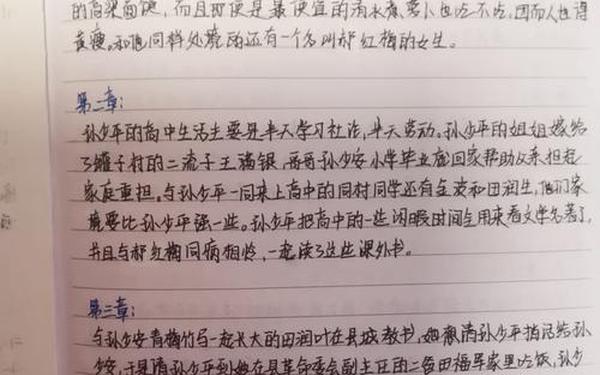 的高粱面馍，而且即便是最便宜的清水煮萝卜也吃不吃，因而人也得
黄瘦。和他同样处境的还有一个名叫郝红梅的女生。
第二章：
孙少平的高中生活主要是半天学习社论，半天劳动。孙少平的姐姐嫁给
了罐子村的二流子王满银，哥哥孙少安小学毕业后回家帮助父亲担起
家庭重担。与孙少平一同来上高中的同村同学还有金波和田润生，他们家
境要比孙少平强一些。孙少平把高中的一些闲暇时间全用来看文学名著了，
并且与郝红梅同病相怜，一起读了这些课外书。
第三章：
与孙少安青梅竹马一起长大的田润叶在县城教书，她想请孙少平捎话给孙
少安，于是请孙少平到她在县革命委会副主任的二爸田福军家里吃饭，孙少